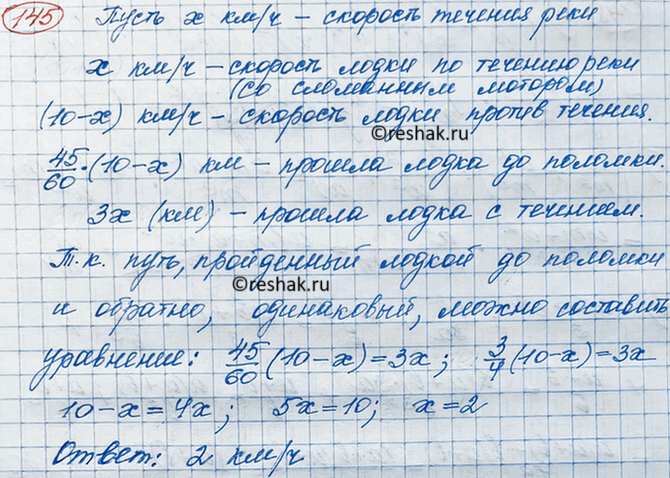 145 Пусть x км/ч – скорость течения реки
x км/ч – скорость лодки по течению реки
(со сломанным мотором)
(10-x) км/ч – скорость лодки против течения.
©reshak.ru
45/60 · (10-x) км – прошла лодка до поломки.
3x (км) – прошла лодка с течением.
Т.к. путь, пройденный лодкой до поломки
©reshak.ru
и обратно, одинаковый, можно составить
уравнение: 45/60 (10-x) = 3x; 3/4 (10-x) = 3x
10-x = 4x; 5x = 10; x = 2
Ответ: 2 км/ч